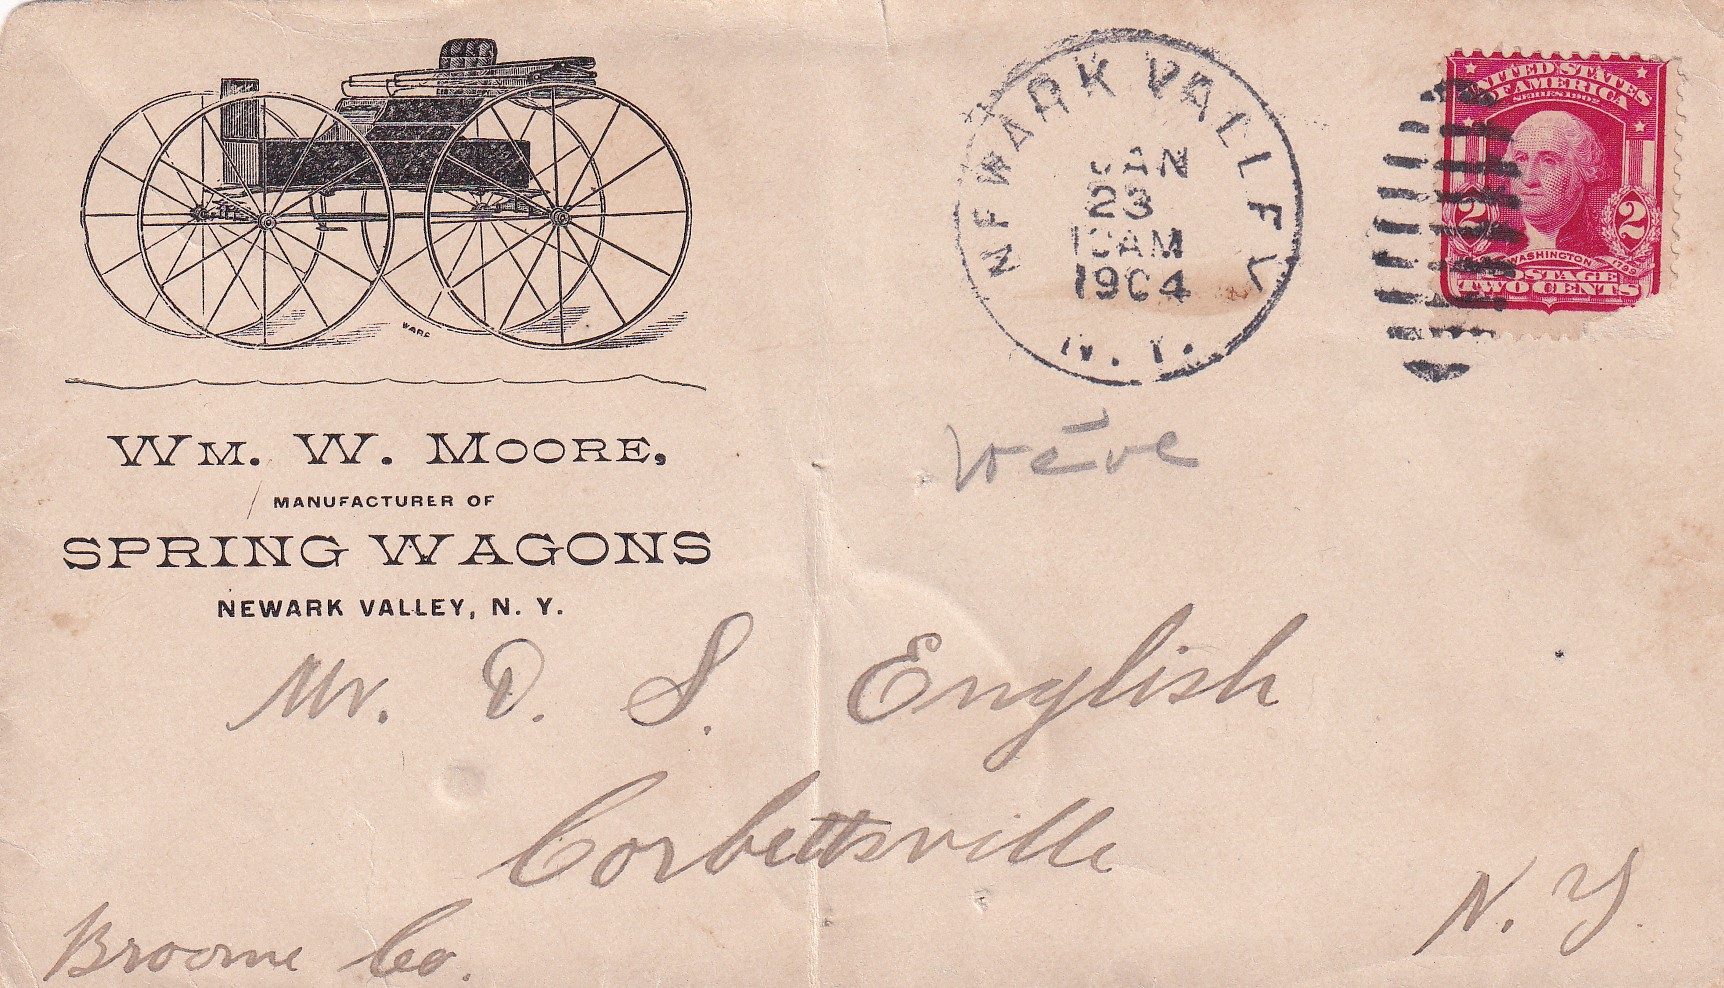 WARE
WM. W. MOORE,
MANUFACTURER OF
SPRING WAGONS
NEWARK VALLEY, N. Y.
NEWARK VALLEY
JAN
23
10AM
1904
N. Y.
UNITED STATES
OF AMERICA
SERIES 1902
2 2
WASHINGTON 1799
POSTAGE
TWO CENTS
Mr. D. S. English
Corbettsville
N. Y.
Broome Co.